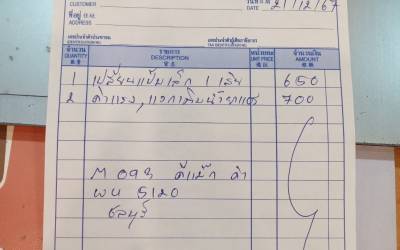 CUSTOMER
DATE 21/12/67
ที่อยู่ 住址
ADDRESS
เลขประจำตัวประชาชน
เลขประจำตัวผู้เสียภาษีอากร
จำนวน รายการ หน่วยละ จำนวนเงิน
QUANTITY DESCRIPTION UNIT PRICE AMOUNT
1 เปลี่ยนแป้นเล็ก 1 เส้น 650
2 ค่าแรง, 700
ดีแม็ก ดำ
ผน 5120
ชลบุรี